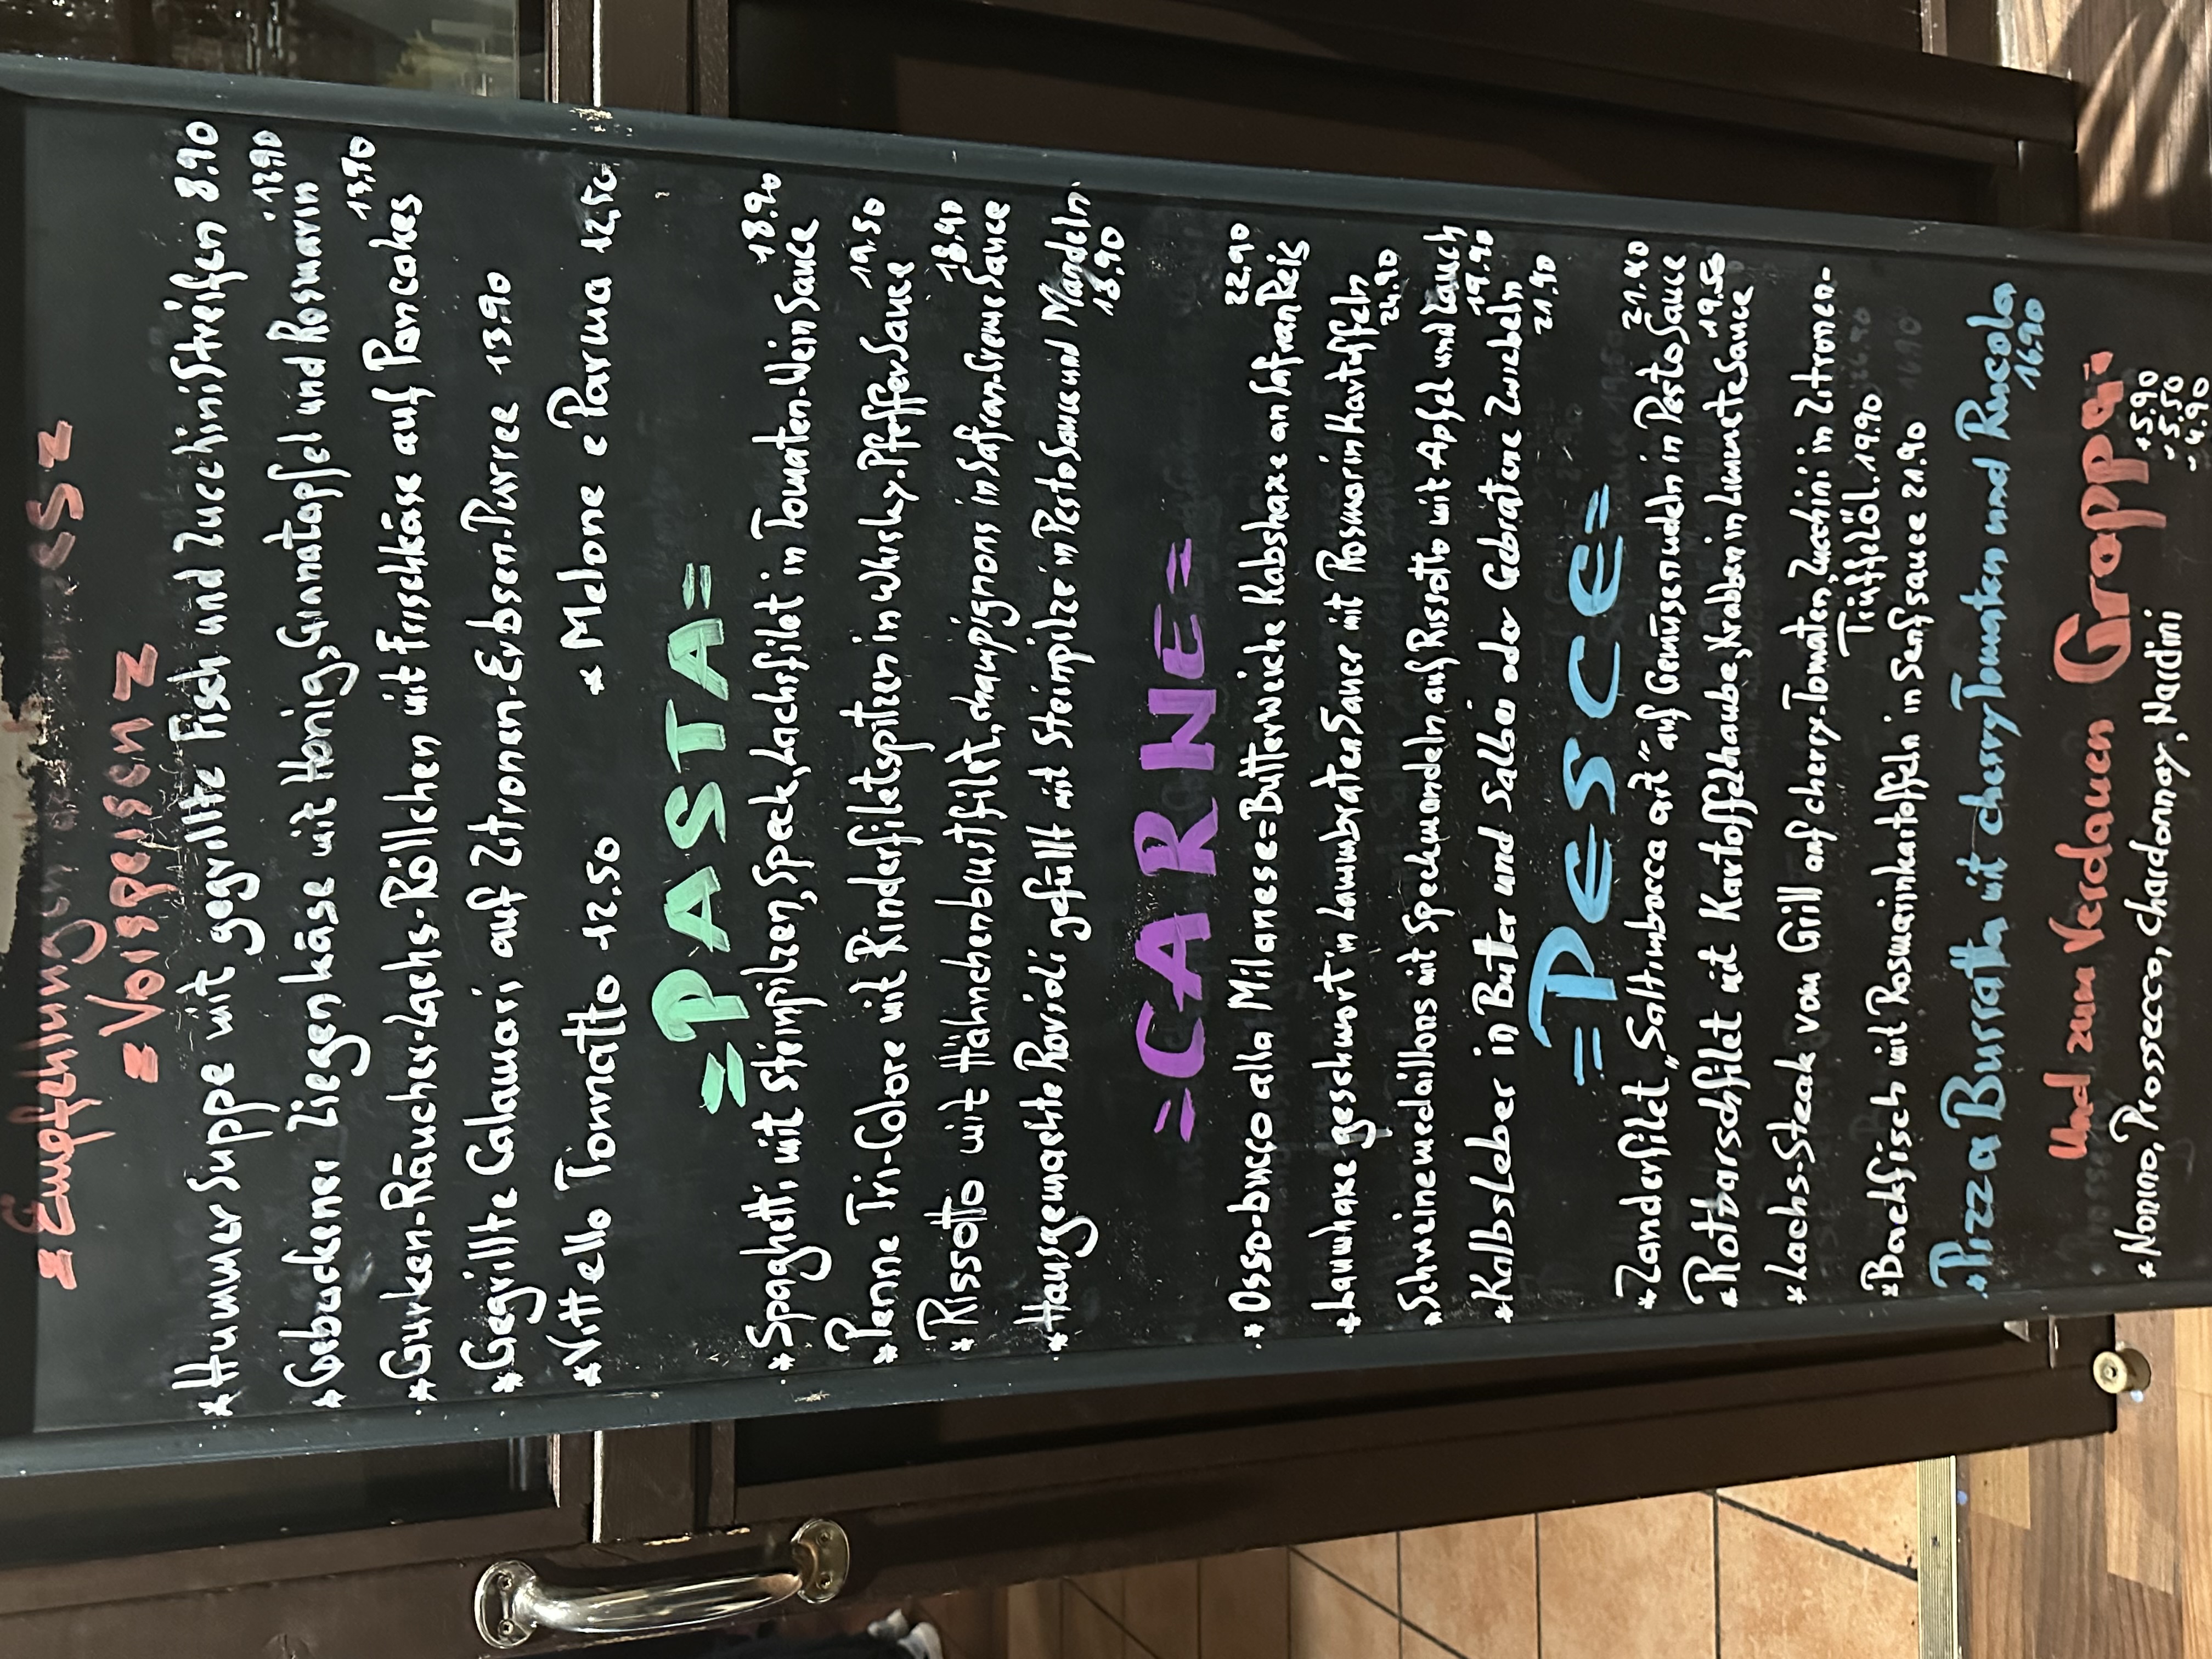 = Empfehlungen des
= Vorspeisen =
* Hummer Suppe mit gegrillte Fisch und Zucchini Streifen 8.90
12.90
* Gebackener Ziegenkäse mit Honig, Granatapfel und Rosmarin
13,90
* Gurken-Räucher-Lachs-Röllchen mit Frischkäse auf Pancakes
* Gegrillte Calamari auf Zitronen-Erbsen-Purree 13.90
* Vittello Tonnatto 12.50 * Melone e Parma 12,50
= PASTA =
18.90
* Spaghetti mit Steinpilzen, Speck, Lachsfilet in Tomaten-Wein Sauce
19.50
* Penne Tri-Colore mit Rinderfiletspitzen in Whisky-Pfeffer Sauce
18.90
* Rissotto mit Hähnchenbrustfilet, champignons in Safran Creme Sauce
* Hausgemachte Ravioli gefüllt mit Steinpilze in Pesto Sauce und Mandeln
18,90
= CARNE =
22.90
* Osso-bucco alla Milanese = Butterweiche Kabshaxe an Safran Reis
* Lammhaxe geschmort in Lammbraten Sauce mit Rosmarin Kartoffeln
24.90
* Schweinemedaillons mit Speckmandeln auf Rissotto mit Apfel und Lauch
19.90
* Kalbsleber in Butter und Salbei oder Gebratene Zwiebeln
21,90
= PESCE =
21.90
* Zanderfilet „Saltimbocca art" auf Gemüsenudeln in Pesto Sauce
19.50
* Rotbarschfilet mit Kartoffelhaube, Krabben in Limette Sauce
* Lachs-Steak vom Grill auf cherry-Tomaten, Zucchini in Zitronen-
Trüffelöl. 19.90
* Backfisch mit Rosmarinkartoffeln in Senfsauce 21.90
* Pizza Burratta mit cherry Tomaten und Rucola
16.90
Und zum Verdauen Grappa =
* Nonino, Prossecco, chardonnay, Nardini
5.90
- 5.50
- 4.90